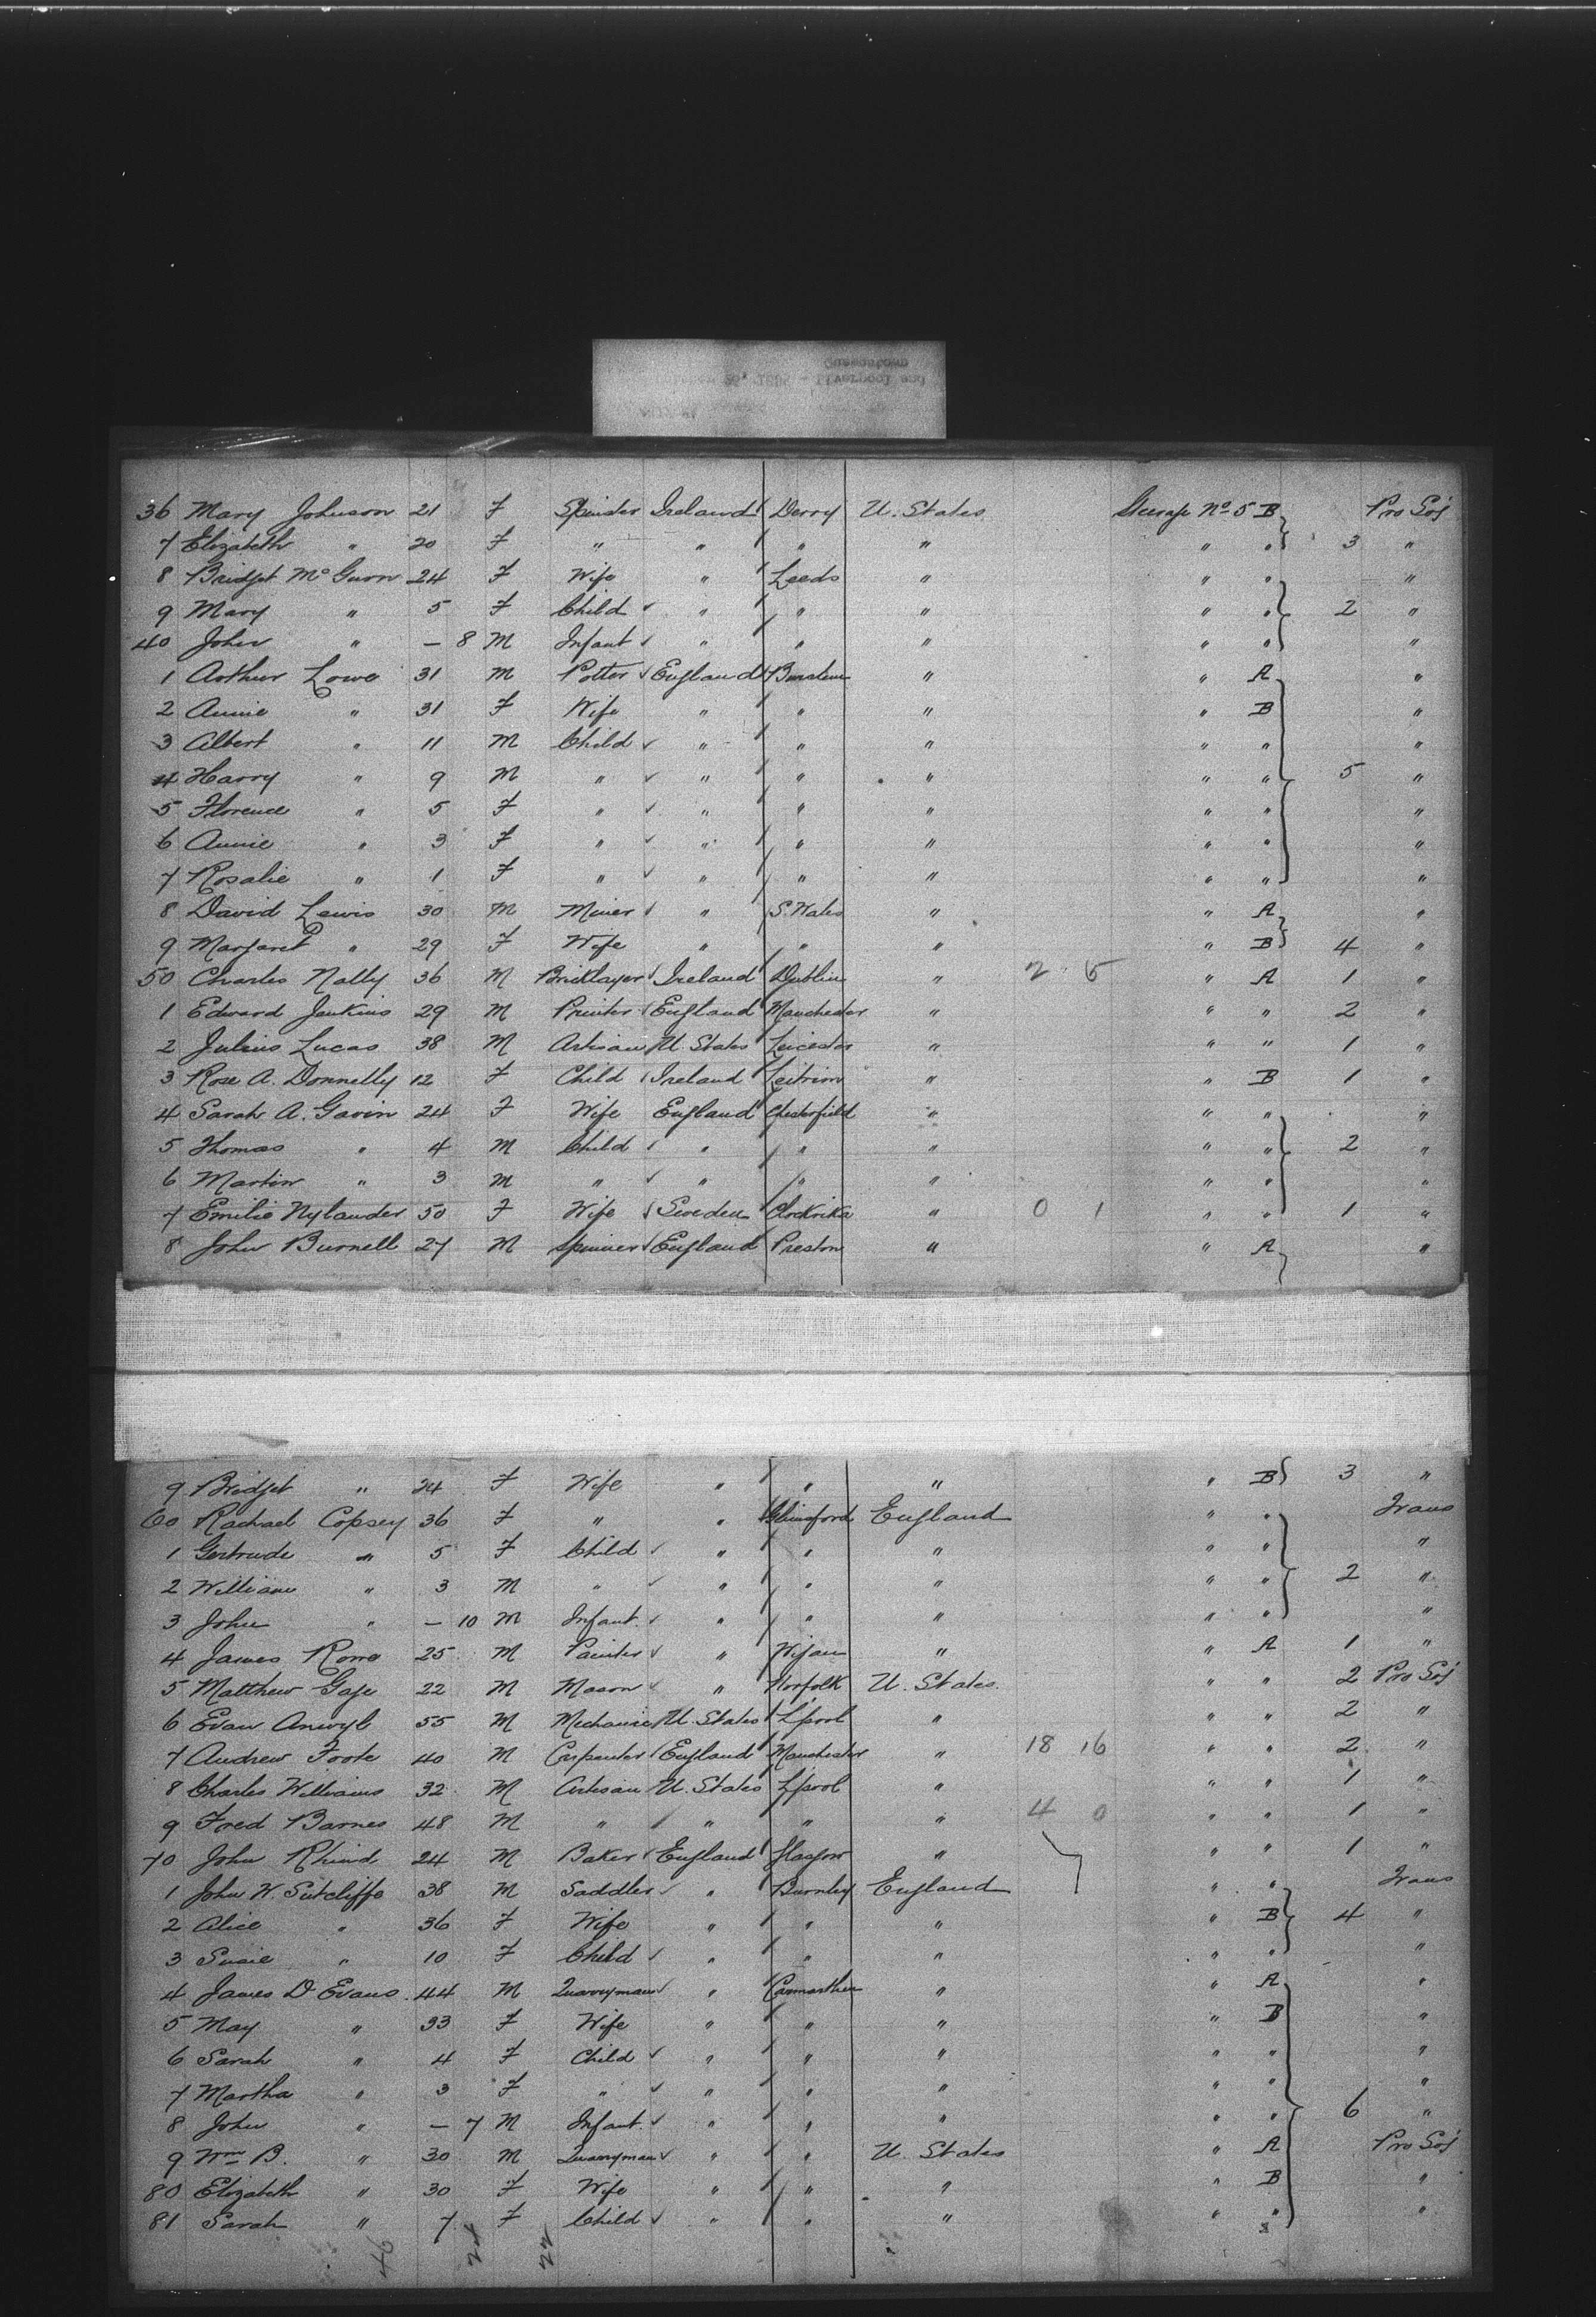 Queenstown
Liverpool and
36 Mary Johnson 21 F Spinster Ireland Derry U. States Steerage No 5 B Pro Soj
7 Elizabeth " 20 F " " " " " " 3 "
8 Bridget McGurn 24 F Wife " Leeds " " " "
9 Mary " 5 F Child " " " " " 2 "
40 John " — 8 M Infant " " " " " "
1 Arthur Lowe 31 M Potter England Burslem " " A "
2 Annie " 31 F Wife " " " " B "
3 Albert " 11 M Child " " " " " "
4 Harry " 9 M " " " " " " 5 "
5 Florence " 5 F " " " " " " "
6 Annie " 3 F " " " " " " "
7 Rosalie " 1 F " " " " " " "
8 David Lewis 30 M Miner " S. Wales " " A "
9 Margaret " 29 F Wife " " " " B 4 "
50 Charles Nally 36 M Bricklayer Ireland Dublin " 2 5 " A 1 "
1 Edward Jenkins 29 M Printer England Manchester " " " 2 "
2 Julius Lucas 38 M Artisan U. States Leicester " " " 1 "
3 Rose A. Donnelly 12 F Child Ireland Leitrim " " B 1 "
4 Sarah A. Gavin 24 F Wife England Chesterfield " " " "
5 Thomas " 4 M Child " " " " " 2 "
6 Martin " 3 M " " " " " " "
7 Emilie Nylander 50 F Wife Sweden Clockrika " 0 1 " " 1 "
8 John Burnell 27 M Spinner England Preston " " A "
9 Bridget " 24 F Wife " " " " B 3 "
60 Rachael Copsey 36 F " " Glemsford England " " Trans
1 Gertrude " 5 F Child " " " " " "
2 William " 3 M " " " " " " 2 "
3 John " — 10 M Infant " " " " " "
4 James Rowe 25 M Painter " Wigan " " A 1 "
5 Matthew Gage 22 M Mason " Norfolk U. States " " 2 Pro Soj
6 Evan Anwyl 55 M Mechanic U. States L'pool " " " 2 "
7 Andrew Foote 40 M Carpenter England Manchester " 18 16 " " 2 "
8 Charles Williams 32 M Artisan U. States L'pool " " " 1 "
9 Fred Barnes 48 M " " " " 4 0 " " 1 "
70 John Rhind 24 M Baker England Glasgow " " " 1 "
1 John W. Sutcliffe 38 M Saddler " Burnley England " " Trans
2 Alice " 36 F Wife " " " " B 4 "
3 Susie " 10 F Child " " " " " "
4 James D Evans 44 M Quarryman " Carmarthen " " A "
5 May " 33 F Wife " " " " B "
6 Sarah " 4 F Child " " " " " "
7 Martha " 3 F " " " " " " "
8 John " — 7 M Infant " " " " " 6 "
9 Wm B. " 30 M Quarryman " " U. States " A Pro Soj
80 Elizabeth " 30 F Wife " " " " B "
81 Sarah " 7 F Child " " " " " "
46 24 22